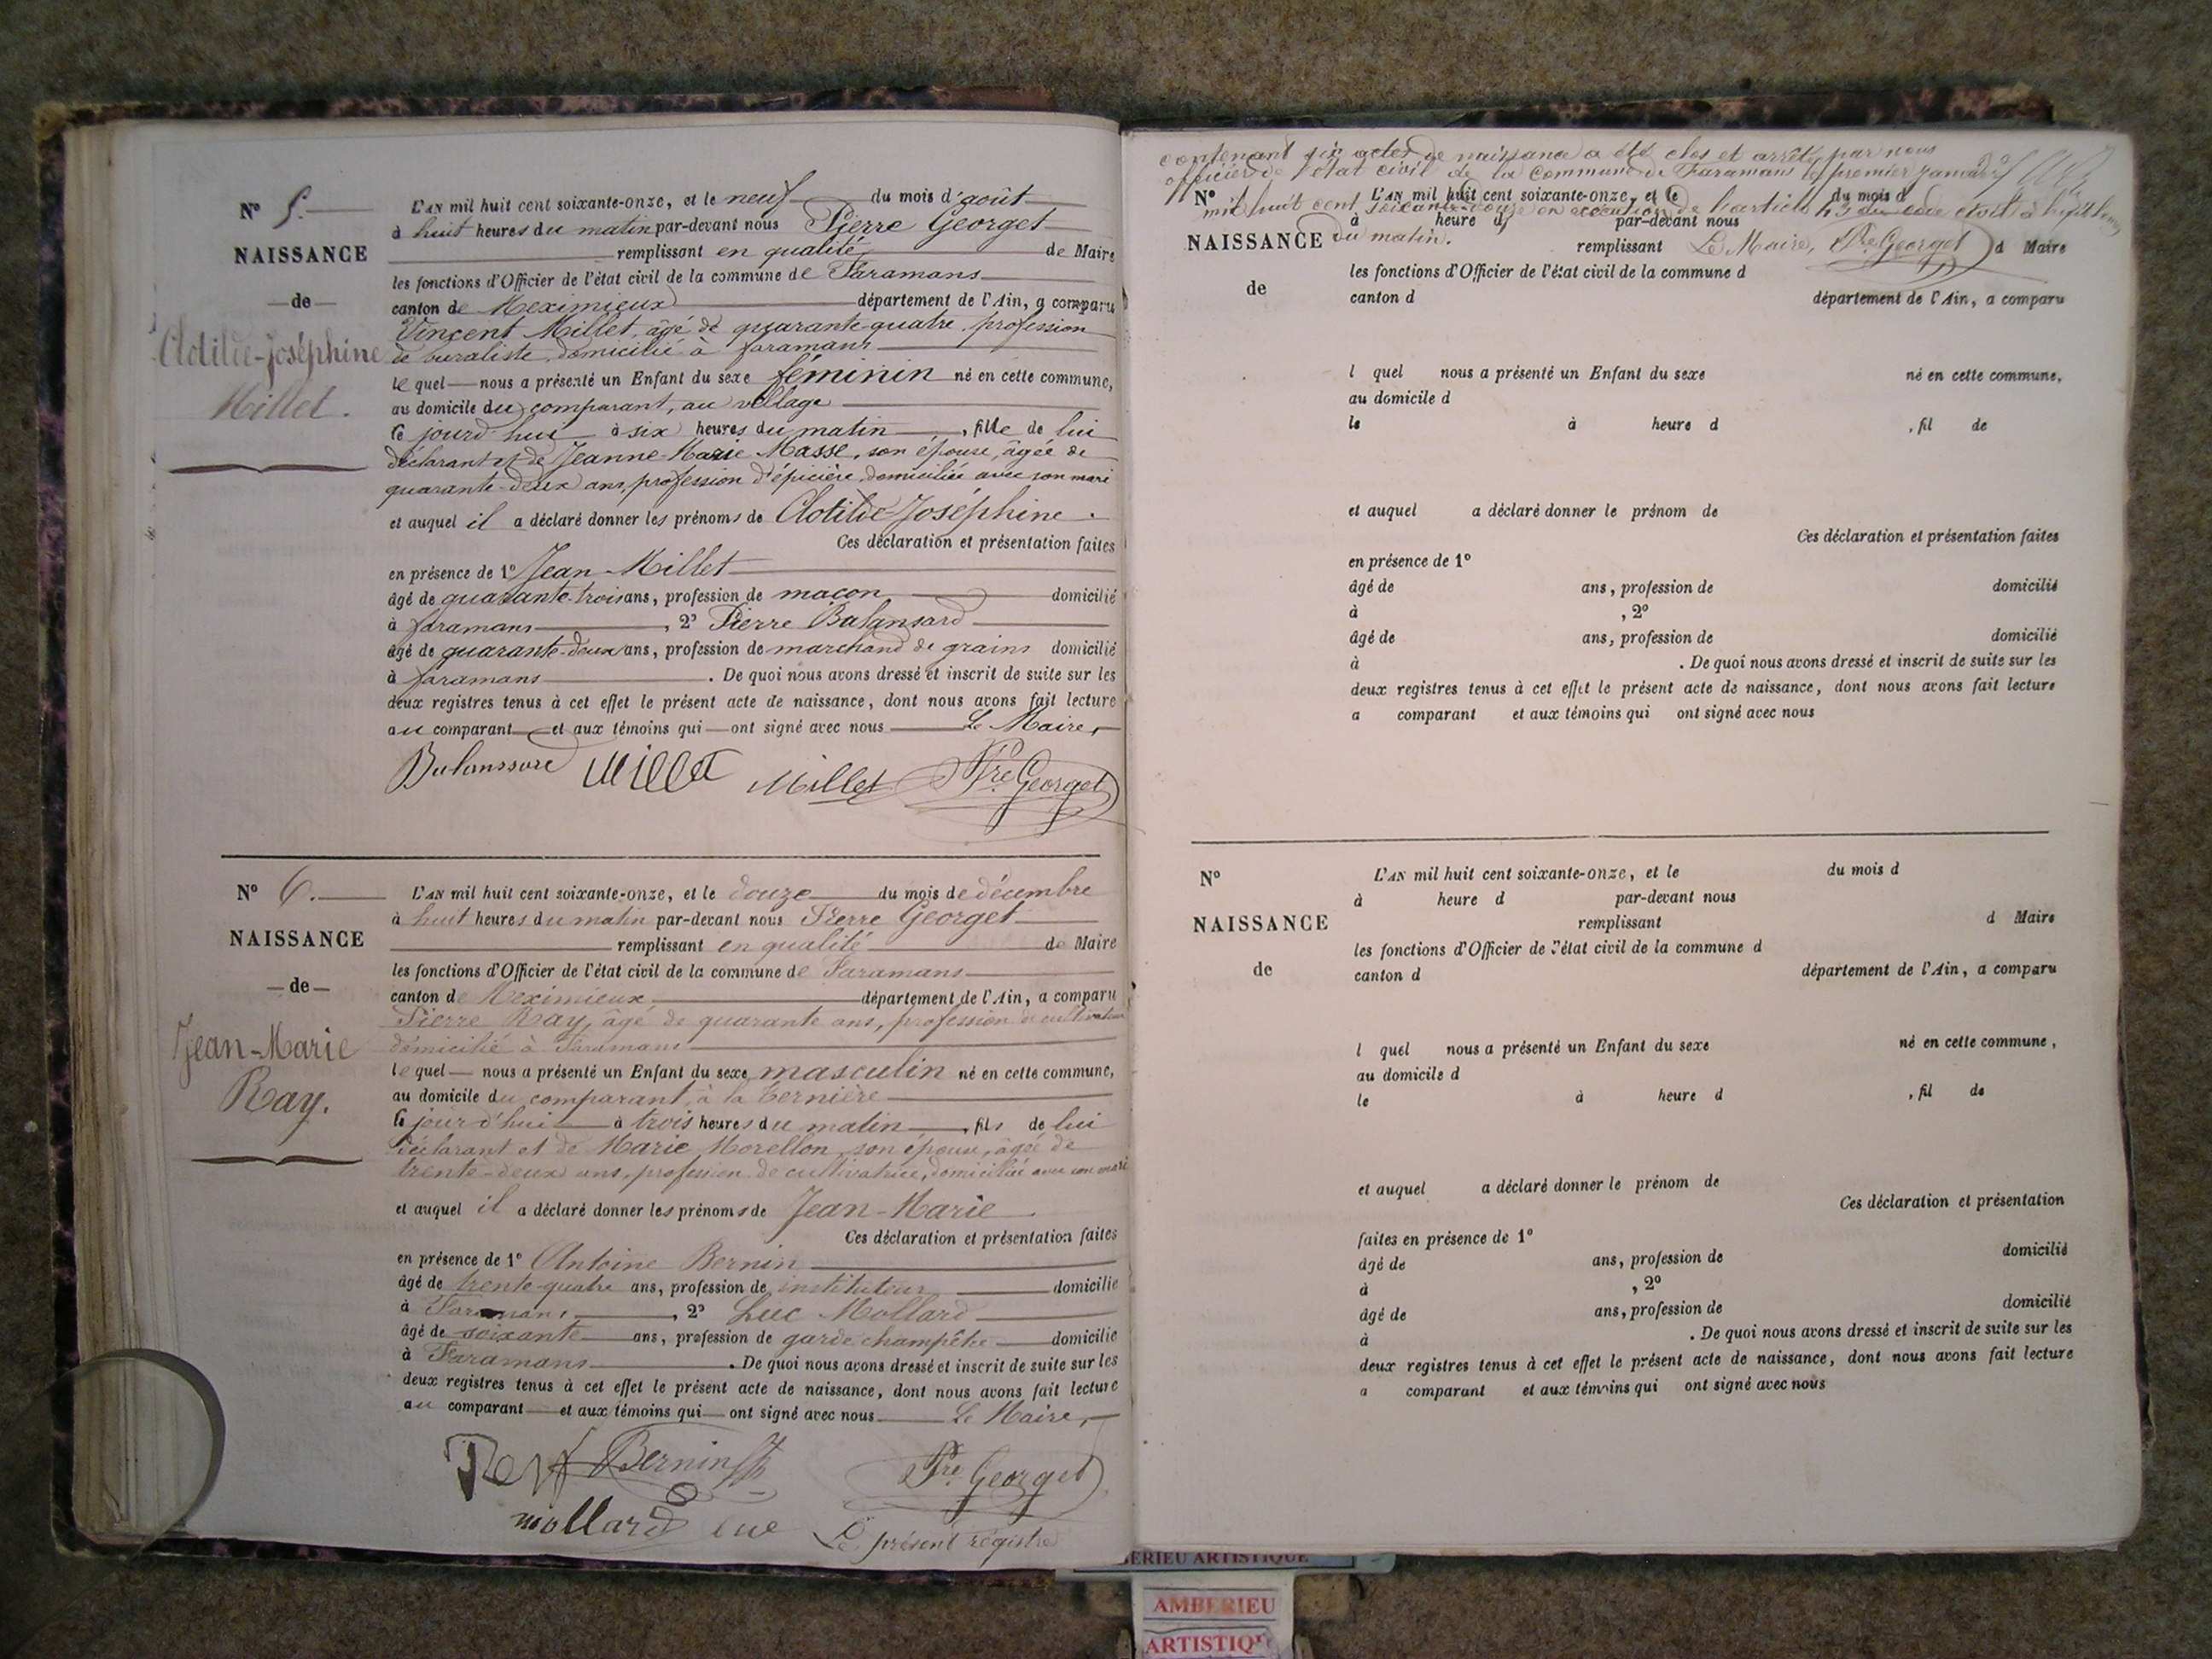 N° 5.
NAISSANCE
de
Clotilde-Joséphine
Millet.
L'AN mil huit cent soixante-onze, et le neuf du mois d'août
à huit heures du matin par-devant nous Pierre Georget
remplissant en qualité de Maire
les fonctions d'Officier de l'état civil de la commune de Faramans
canton de Meximieux département de l'Ain, a comparu
Vincent Millet, âgé de quarante-quatre, profession
de buraliste domicilié à faramans
lequel nous a présenté un Enfant du sexe féminin né en cette commune,
au domicile du comparant, au village
le jourd'hui à six heures du matin, fille de lui
déclarant et de Jeanne-Marie Masse, son épouse, âgée de
quarante-deux ans, profession d'épicière, domiciliée avec son mari
et auquel il a déclaré donner les prénoms de Clotilde Joséphine.
Ces déclaration et présentation faites
en présence de 1° Jean Millet
âgé de quarante-trois ans, profession de maçon domicilié
à faramans, 2° Pierre Balansard
âgé de quarante-deux ans, profession de marchand de grains domicilié
à faramans. De quoi nous avons dressé et inscrit de suite sur les
deux registres tenus à cet effet le présent acte de naissance, dont nous avons fait lecture
au comparant et aux témoins qui ont signé avec nous Le Maire,
Millet Millet Pre Georget
N° 6.
NAISSANCE
de
Jean-Marie
Ray.
L'AN mil huit cent soixante-onze, et le douze du mois de décembre
à huit heures du matin par-devant nous Pierre Georget
remplissant en qualité de Maire
les fonctions d'Officier de l'état civil de la commune de Faramans
canton de Meximieux département de l'Ain, a comparu
Pierre Ray, âgé de quarante ans, profession de cultivateur
domicilié à Faramans
lequel nous a présenté un Enfant du sexe masculin né en cette commune,
au domicile du comparant, à la
le jour d'hui à trois heures du matin, fils de lui
déclarant et de Marie Morellon, son épouse, âgée de
trente-deux ans, profession de cultivatrice, domiciliée avec son mari
et auquel il a déclaré donner les prénoms de Jean-Marie
Ces déclaration et présentation faites
en présence de 1° Antoine Bernin
âgé de trente-quatre ans, profession de instituteur domicilié
à Faramans, 2° Luc Mollard
âgé de soixante ans, profession de garde champêtre domicilié
à Faramans. De quoi nous avons dressé et inscrit de suite sur les
deux registres tenus à cet effet le présent acte de naissance, dont nous avons fait lecture
au comparant et aux témoins qui ont signé avec nous Le Maire,
Bernin Pre Georget
mollard luc
Le présent régistre
contenant six actes de naissance a été clos et arrêté par nous
officier de l'état civil de la Commune de Faramans le premier janvier
mil huit cent soixante-douze en exécution de l'article 43 du code civil à
du matin.
Le Maire, Pre Georget
N°
NAISSANCE
de
L'AN mil huit cent soixante-onze, et le du mois d
à heure d par-devant nous
remplissant d Maire
les fonctions d'Officier de l'état civil de la commune d
canton d département de l'Ain, a comparu
l quel nous a présenté un Enfant du sexe né en cette commune,
au domicile d
le à heure d , fil de
et auquel a déclaré donner le prénom de
Ces déclaration et présentation faites
en présence de 1°
âgé de ans, profession de domicilié
à , 2°
âgé de ans, profession de domicilié
à . De quoi nous avons dressé et inscrit de suite sur les
deux registres tenus à cet effet le présent acte de naissance, dont nous avons fait lecture
a comparant et aux témoins qui ont signé avec nous
N°
NAISSANCE
de
L'AN mil huit cent soixante-onze, et le du mois d
à heure d par-devant nous
remplissant d Maire
les fonctions d'Officier de l'état civil de la commune d
canton d département de l'Ain, a comparu
l quel nous a présenté un Enfant du sexe né en cette commune,
au domicile d
le à heure d , fil de
et auquel a déclaré donner le prénom de
Ces déclaration et présentation
faites en présence de 1°
âgé de ans, profession de domicilié
à , 2°
âgé de ans, profession de domicilié
à . De quoi nous avons dressé et inscrit de suite sur les
deux registres tenus à cet effet le présent acte de naissance, dont nous avons fait lecture
a comparant et aux témoins qui ont signé avec nous
BERIEU ARTISTIQUE
AMBERIEU
ARTISTIQU